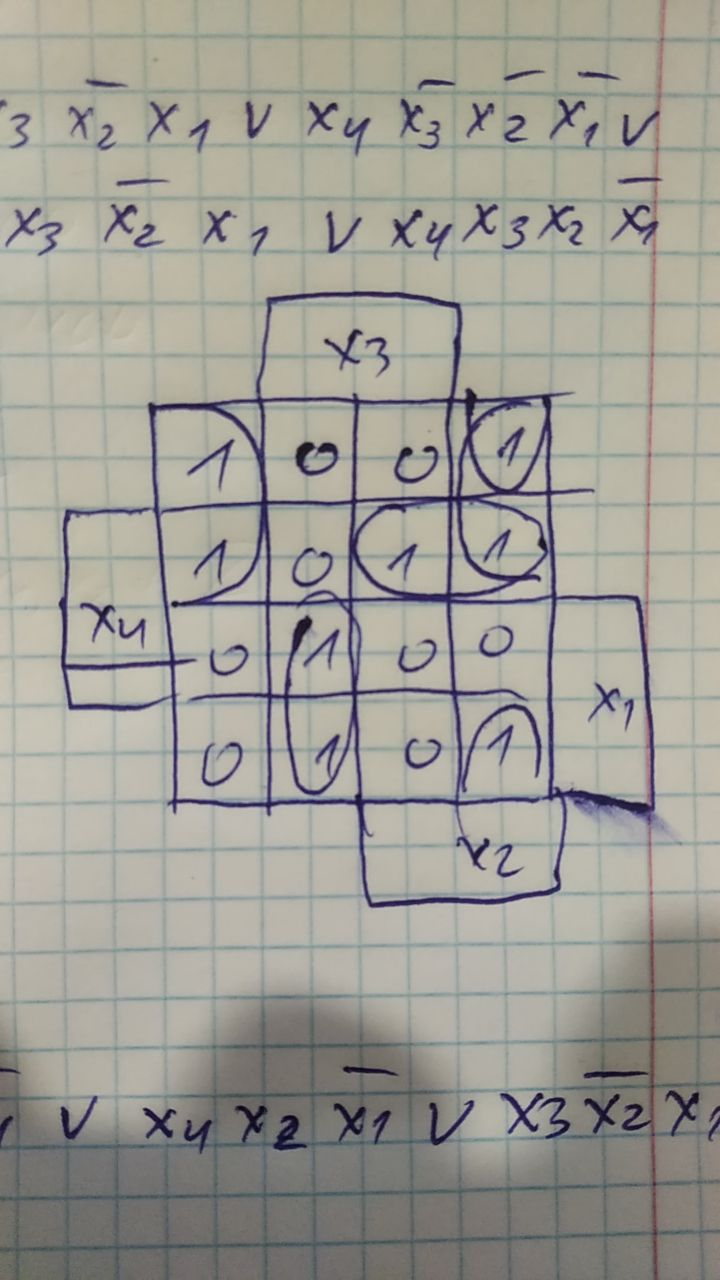 x̅₂ x₁ ∨ x₄ x̅₃ x̅₂ x̅₁ ∨
x₃ x̅₂ x₁ ∨ x₄ x₃ x₂ x̅₁
x₃
1 0 0 1
1 0 1 1
x₄
0 1 0 0
x₁
0 1 0 1
x₂
∨ x₄ x₂ x̅₁ ∨ x₃ x̅₂ x₁